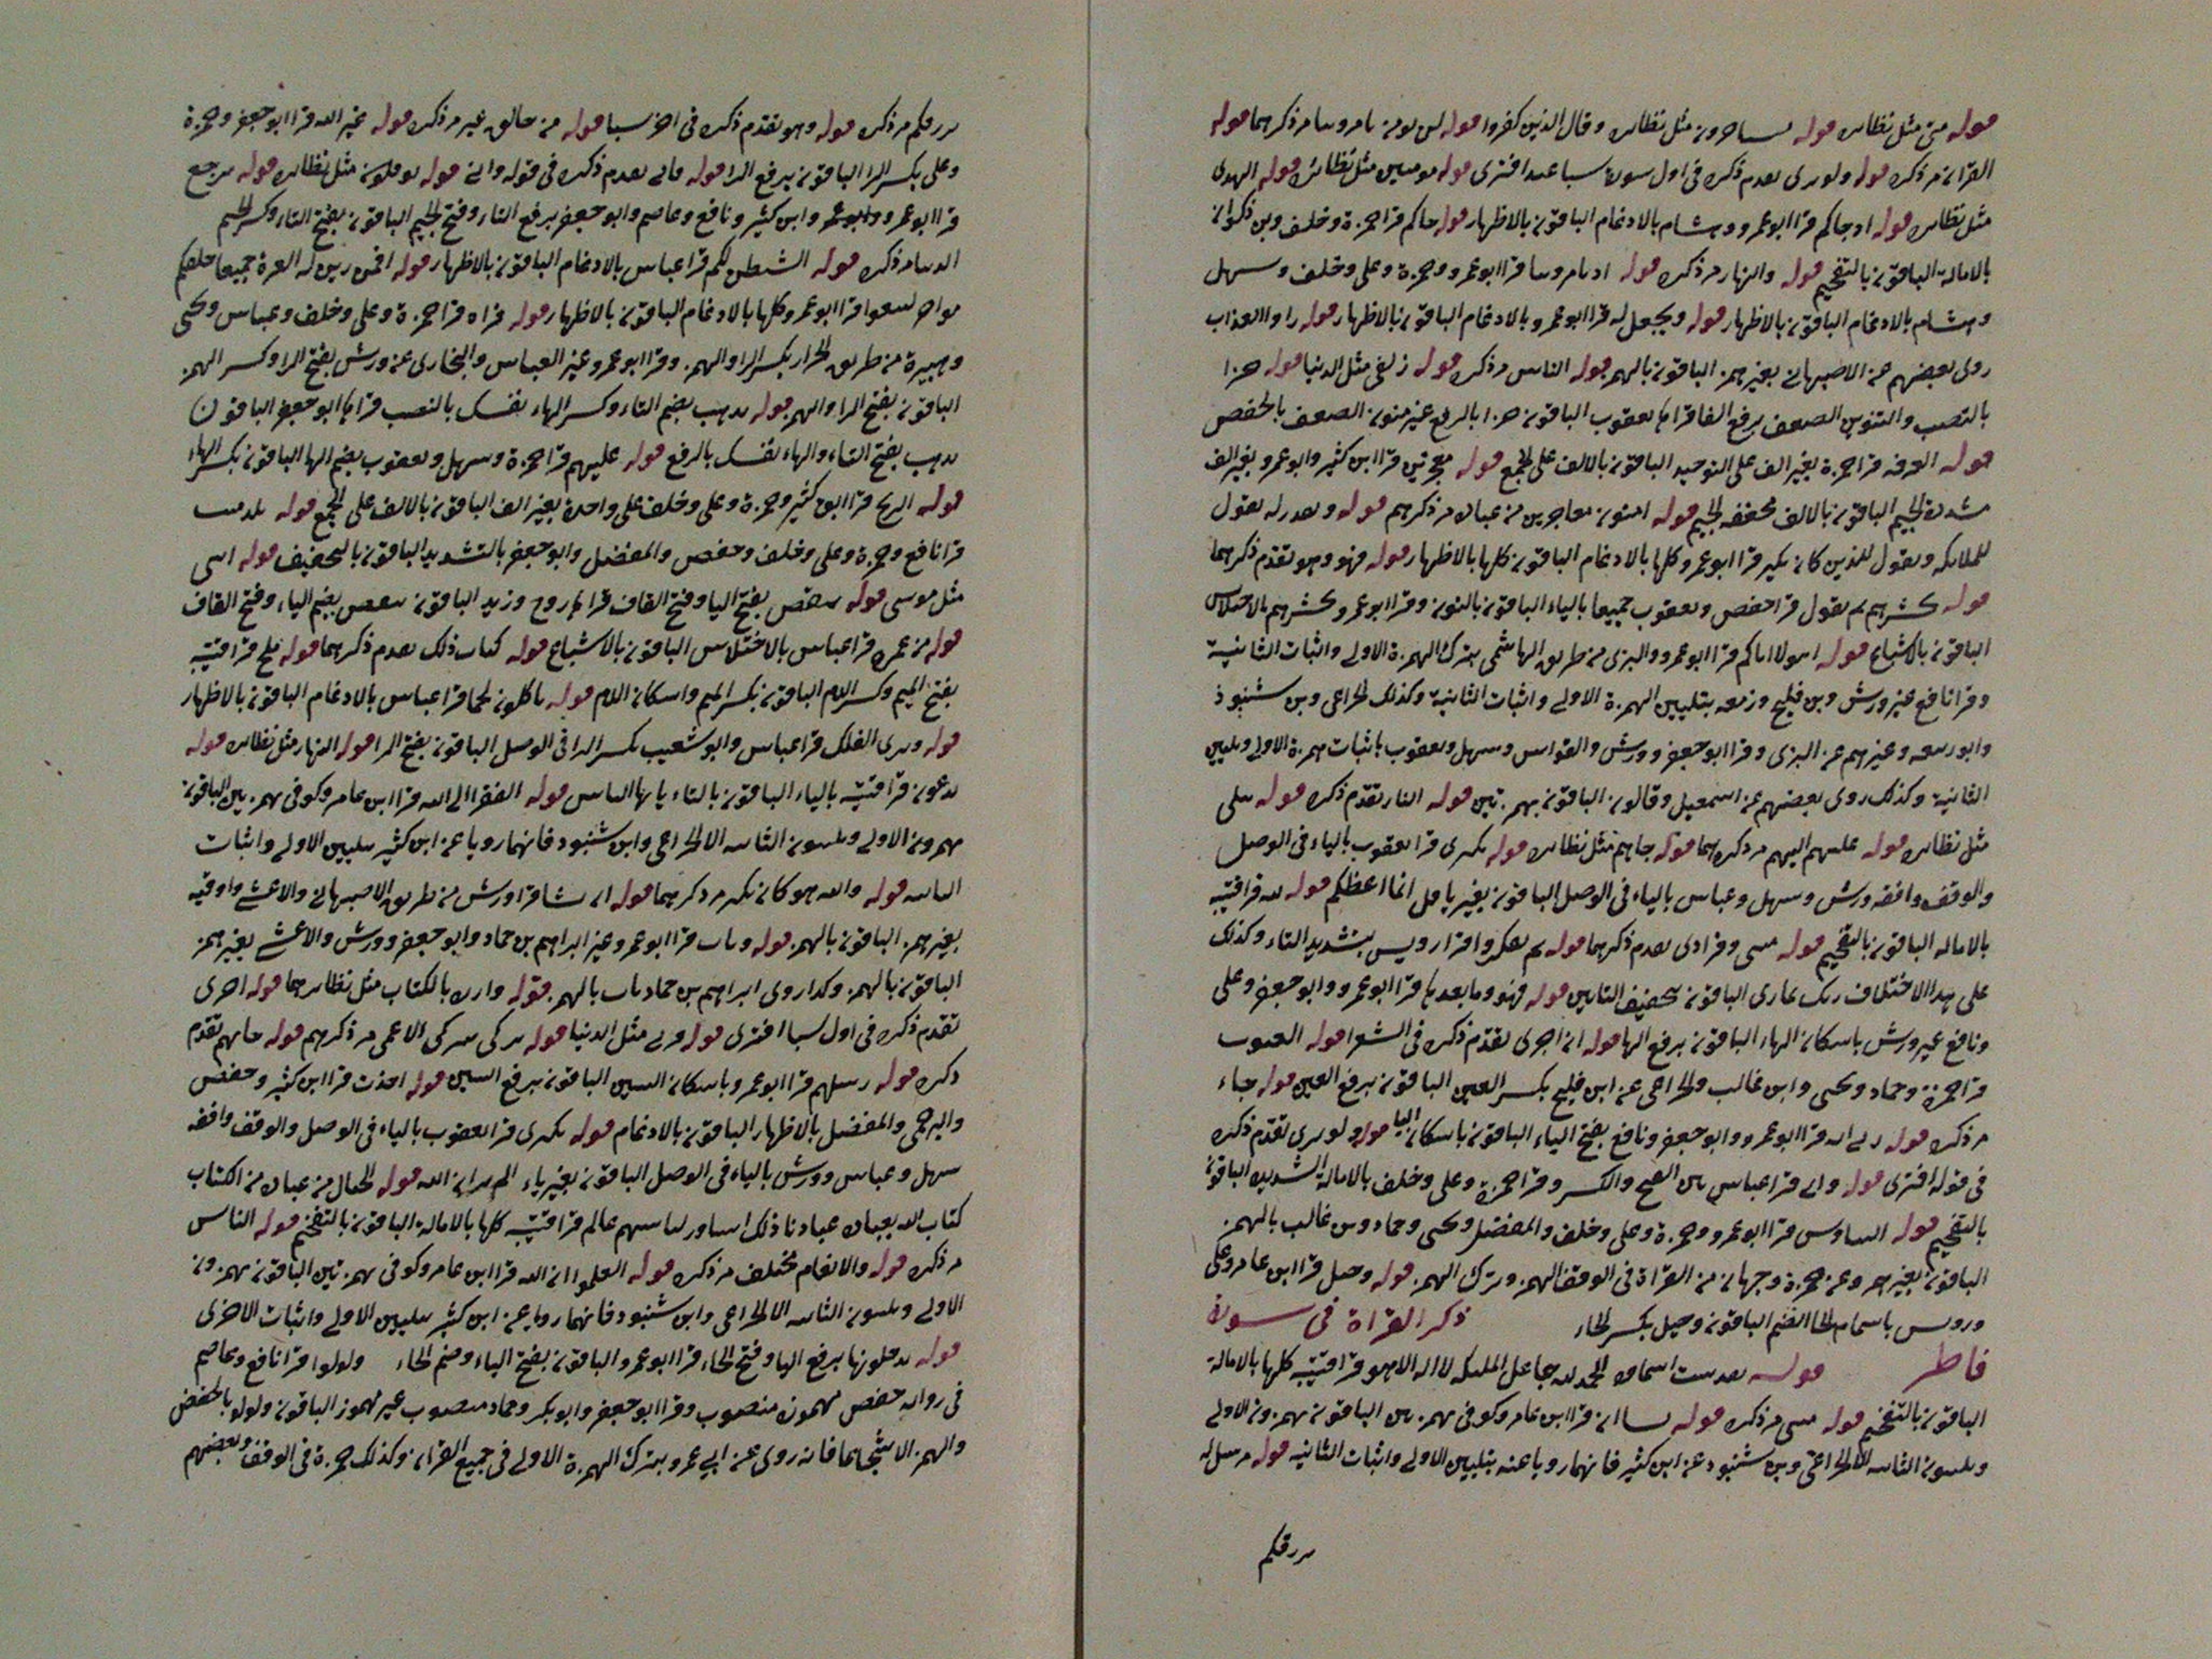 قوله متى مثل نظائره قوله مثل نظائره وقال الذين كفروا قوله لن نومن مر ذكرهما قوله
القران مر ذكره قوله ولو ترى تقدم ذكره في اول سورة سبا عند افترى قوله مومنين مثل نظائره قوله الهدى
مثل نظائره قوله اذ جاكم قرا ابو عمرو وهشام بالادغام الباقون بالاظهار قوله جاكم قرا حمزة وخلف وبن ذكوان
بالامالة الباقون بالتفخيم قوله والنهار مر ذكره قوله اذ تامروننا قرا ابو عمرو وحمزة وعلي وخلف وسهل
وهشام بالادغام الباقون بالاظهار قوله ويجعل له قرا ابو عمرو بالادغام الباقون بالاظهار قوله راوا العذاب
روى بعضهم عن الاصبهاني بغير همز الباقون بالهمز قوله الناس مر ذكره قوله زلفى مثل الدنيا قوله جزا
بالنصب والتنوين الضعف برفع الفا قراها يعقوب الباقون جزا بالرفع غير منون الضعف بالخفض
قوله الغرفه قرا حمزة بغير الف على التوحيد الباقون بالالف على الجمع قوله معجزين قرا ابن كثير وابو عمرو بغير الف
مشددة الجيم الباقون بالالف مخففه الجيم قوله امنون معاجزين من عباده مر ذكرهم قوله ويقدر له نقول
للملائكه ونقول للذين كان نكير قرا ابو عمرو كلها بالادغام الباقون كلها بالاظهار قوله فهو وهو تقدم ذكرهما
قوله نحشرهم ثم نقول قرا حفص ويعقوب جميعا بالياء الباقون بالنون وقرا ابو عمرو نحشرهم بالاختلاس
الباقون بالاشباع قوله اهولا اياكم قرا ابو عمرو والبزى من طريق الهاشمي بترك الهمزة الاولى واثبات الثانية
وقرا نافع غير ورش وبن فليح وزمعه بتليين الهمزة الاولى واثبات الثانية وكذلك الخزاعي وبن شنبوذ
وابو ربيعه وغيرهم عن البزى وقرا ابو جعفر وورش والقواس وسهل ويعقوب باثبات همزة الاولى وتليين
الثانية وكذلك روى بعضهم عن اسمعيل وقالون الباقون بهمزتين قوله النار تقدم ذكره قوله تتلى
مثل نظائره قوله عليهم اليهم مر ذكرهما قوله جاهم مثل نظائره قوله نكيرى قرا يعقوب بالياء في الوصل
والوقف وافقه ورش وسهل وعباس بالياء في الوصل الباقون بغير يا قل انما اعظكم قوله لله قرا قتيبه
بالاماله الباقون بالتفخيم قوله مثنى وفرادى تقدم ذكرهما قوله ثم تتفكروا قرا رويس بتشديد التاء وكذلك
على هذا الاختلاف ربك تتمارى الباقون بتخفيف التائين قوله فهو وما بعدها قرا ابو عمرو وابو جعفر وعلي
ونافع غير ورش باسكان الهاء الباقون برفع الها قوله ان اجرى تقدم ذكره في الشعرا قوله الغيوب
قرا حمزة وحماد ويحيى وابن غالب والخزاعي عن ابن فليح بكسر الغين الباقون برفع الغين قوله جاء
مر ذكره قوله ربي انه قرا ابو عمرو وابو جعفر ونافع بفتح الياء الباقون باسكان اليا قوله ولو ترى تقدم ذكره
في قوله افترى قوله وانى قرا عباس بين الفتح والكسر وقرا حمزة وعلي وخلف بالامالة الشديده الباقون
بالتفخيم قوله التناوش قرا ابو عمرو وحمزة وعلي وخلف والمفضل ويحيى وحماد وبن غالب بالهمز
الباقون بغير همز وعن حمزة وجهان من القراة في الوقف الهمز وترك الهمز قوله وحيل قرا ابن عامر وعلي
ورويس باسمام الحا الضم الباقون وحيل بكسر الحاء ذكر القراة في سورة
فاطر قوله الحمد لله جاعل الملئكه لا اله الا هو قرا قتيبه كلها بالامالة
الباقون بالتفخيم قوله مثنى مر ذكره قوله يشا ان قرا ابن عامر وكوفي بهمزتين الباقون يهمزون الاولى
ويلينون الثانيه الا الخزاعي وبن شنبوذ عن ابن كثير فانهما رويا عنه بتليين الاولى واثبات الثانيه قوله مرسل له
يرزقكم
يرزقكم مر ذكره قوله وهو تقدم ذكره في اخر سبا قوله من خالق غير مر ذكره قوله غير الله قرا ابو جعفر وحمزة
وعلي بكسر الرا الباقون برفع الرا قوله فانى تقدم ذكره في قوله وانى قوله توفكون مثل نظائره قوله ترجع
قرا ابو عمرو وابو عمر وابن كثير ونافع وعاصم وابو جعفر برفع التاء وفتح الجيم الباقون بفتح التاء وكسر الجيم
الدنيا مر ذكره قوله الشيطن لكم قرا عباس بالادغام الباقون بالاظهار قوله افمن زين له العزة جميعا خلقكم
مواخر لتبتغوا قرا ابو عمرو كلها بالادغام الباقون بالاظهار قوله فراه قرا حمزة وعلي وخلف وعباس ويحيى
وهبيرة من طريق الخزاز بكسر الرا والهمز وقرا ابو عمرو غير العباس والبخارى عن ورش بفتح الرا وكسر الهمز
الباقون بفتح الرا والهمز قوله تذهب بضم التاء وكسر الهاء نفسك بالنصب قراها ابو جعفر الباقون
تذهب بفتح التاء والهاء نفسك بالرفع قوله عليهم قرا حمزة وسهل ويعقوب بضم الها الباقون بكسر الهاء
قوله الريح قرا ابن كثير وحمزة وعلي وخلف على واحدة بغير الف الباقون بالالف على الجمع قوله بلد ميت
قرا نافع وحمزة وعلي وخلف وحفص والمفضل وابو جعفر بالتشديد الباقون بالتخفيف قوله انثى
مثل موسى قوله ينقص بفتح اليا وفتح القاف قراها روح وزيد الباقون ينقص بضم الياء وفتح القاف
قوله من عمره قرا عباس بالاختلاس الباقون بالاشباع قوله كتاب ذلك تقدم ذكرهما قوله ملح قرا قتيبه
بفتح الميم وكسر اللام الباقون بكسر الميم واسكان اللام قوله تاكلون لحما قرا عباس بالادغام الباقون بالاظهار
قوله وترى الفلك قرا عباس وابو شعيب بكسر الرا في الوصل الباقون بفتح الرا قوله النهار مثل نظائره قوله
تدعون قرا قتيبه بالياء الباقون بالتاء يايها الناس قوله الفقرا الى الله قرا ابن عامر وكوفي بهمزتين الباقون
يهمزون الاولى ويلينون الثانيه الا الخزاعي وابن شنبوذ فانهما رويا عن ابن كثير بتليين الاولى واثبات
الثانيه قوله والله هو كان نكير مر ذكرهما قوله ان يشا قرا ورش من طريق الاصبهاني والاعشى واوقيه
بغير همز الباقون بالهمز قوله ويات قرا ابو عمرو غير ابراهيم بن حماد وابو جعفر وورش والاعشى بغير همز
الباقون بالهمز وكذا روى ابراهيم بن حماد يات بالهمز قوله وازرة بالكتاب مثل نظائرهما قوله اخرى
تقدم ذكره في اول سبا افترى قوله قربى مثل الدنيا قوله تزكى يتزكى الاعمى مر ذكرهم قوله جاتهم تقدم
ذكره قوله رسلهم قرا ابو عمرو باسكان السين الباقون برفع السين قوله اخذت قرا ابن كثير وحفص
والبرجمي والمفضل بالاظهار الباقون بالادغام قوله نكيرى قرا يعقوب بالياء في الوصل والوقف وافقه
سهل وعباس وورش بالياء في الوصل الباقون بغير ياء الم تر ان الله قوله الجبال من عباده من الكتاب
كتاب الله بعباده عبادنا ذلك اساور لباسهم عالم قرا قتيبه كلها بالامالة الباقون بالتفخيم قوله الناس
مر ذكره قوله والانعام مختلف مر ذكره قوله العلموا ان الله قرا ابن عامر وكوفي بهمزتين الباقون يهمزون
الاولى ويلينون الثانيه الا الخزاعي وابن شنبوذ فانهما رويا عن ابن كثير بتليين الاولى واثبات الاخرى
قوله يدخلونها برفع اليا وفتح الخاء قرا ابو عمرو الباقون بفتح الياء وضم الخاء ولولوا قرا نافع وعاصم
في روايه حفص مهموزه منصوب وقرا ابو جعفر وابو بكر وحماد منصوب غير مهموز الباقون ولولو بالخفض
والهمز الا شجاعا فانه روى عن ابي عمرو بترك الهمزة الاولى في جميع القران وكذلك حمزة في الوقف وبعضهم